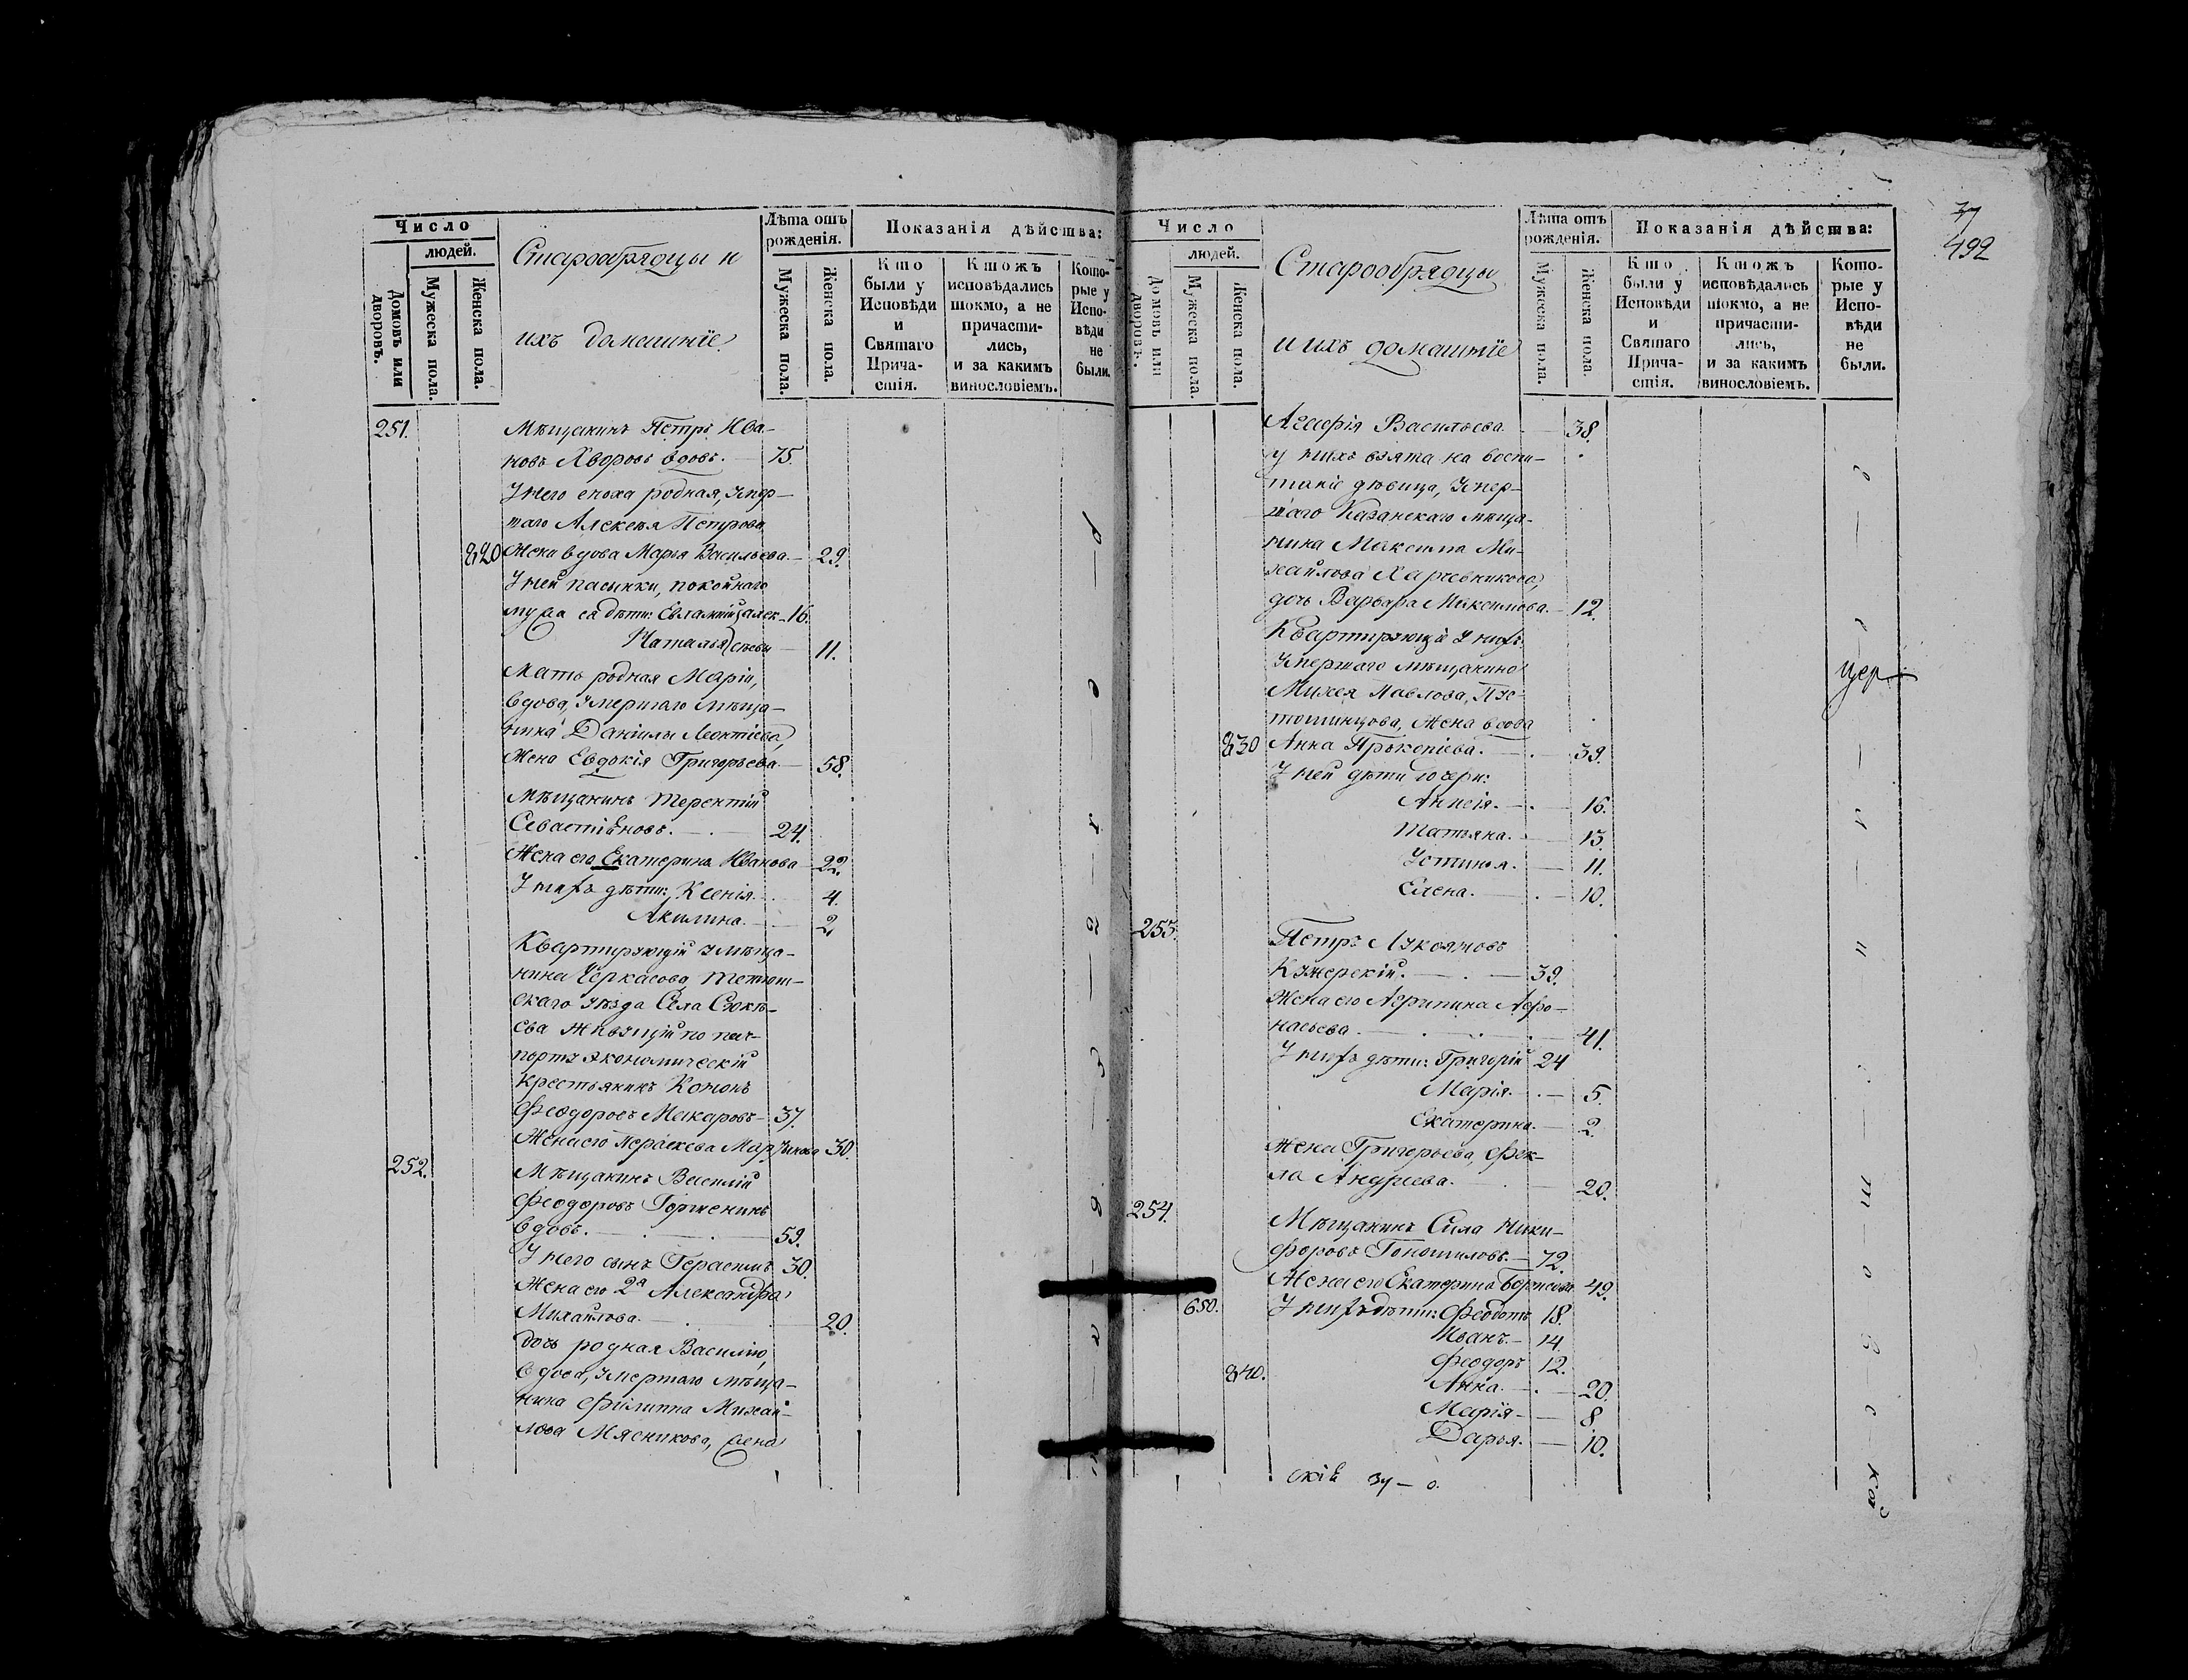 Число
людей.
Домовъ или дворовъ.
Мужеска пола.
Женска пола.
Старообрядцы и
ихъ домашніе
Лѣта отъ рожденія.
Мужеска пола.
Женска пола.
Показанія дѣйства:
Кто были у Исповѣди и Святаго Прича-стія.
Ктожъ исповѣдались токмо, а не причасти-лись, и за какимъ винословіемъ.
Кото-рые у Испо-вѣди не были.
251. Мѣщанинъ Петръ Ива-
новъ Хворовъ вдовъ. — 75.
У него сноха родная, умер-
шаго Алексѣя Петрова
820 Жена вдова Марья Васильева. — 29.
У ней пасынки, покойнаго
мужа ея дѣти: Евлампій Алек- 16.
Наталья сѣевы — 11.
Мать родная Маріи,
вдова, умершаго мѣща-
нина Даніилы Леонтіева,
Жена Евдокія Григорьева — 58.
Мѣщанинъ Терентій
Севастіановъ. — 24.
Жена его Екатерина Иванова — 22.
У нихъ дѣти: Ксенія. — 4.
Акилина. — 2.
Квартирующій у мѣща-
нина Черкасова Тетюш-
скаго уѣзда Села Сюкѣ-
ева живущій по пач-
порту экономическій
крестьянинъ Кононъ
Феодоровъ Макаровъ — 37.
Жена его Параскева Маркова 30.
252. Мѣщанинъ Василій
Феодоровъ
вдовъ. — 59.
У него сынъ Герасимъ 30.
Жена его 2я Александра
Михайлова. — 20.
дочь родная Василію,
вдова, умершаго мѣща-
нина Филиппа Михай-
лова Мясникова, жена
37
492
Число
людей.
Домовъ или дворовъ.
Мужеска пола.
Женска пола.
Старообрядцы
и ихъ домашніе
Лѣта отъ рожденія.
Мужеска пола.
Женска пола.
Показанія дѣйства:
Кто были у Исповѣди и Святаго Прича-стія.
Ктожъ исповѣдались токмо, а не причасти-лись, и за какимъ винословіемъ.
Кото-рые у Испо-вѣди не были.
Агафія Васильева — 38.
у нихъ взята на воспи-
таніе дѣвица, умер-
шаго Казанскаго мѣща-
нина Максима Ми-
хайлова Харчевникова,
дочь Варвара Максимова. — 12.
Квартирующія у нихъ
умершаго мѣщанина
Михея Павлова,
жена вдова
830 Анна Прокопіева. — 39.
У ней дѣти дочери:
Анисія. — 16.
Татьяна. — 13.
Устинья. — 11.
Елена. — 10.
253. Петръ Лукояновъ
— 39.
Жена его Агрипина Афо-
насьева — 41.
У нихъ дѣти: Григорій 24
Марія. — 5.
Екатерина. — 2.
Жена Григорьева, Фек-
ла Андреева. — 20.
254. Мѣщанинъ Сила Ники-
форовъ — 72.
Жена его Екатерина Борисова 49.
650. У нихъ дѣти: Феодотъ 18.
Иванъ. — 14.
Феодоръ 12.
840. Анна. — 20.
Марія — 8.
Дарья. — 10.